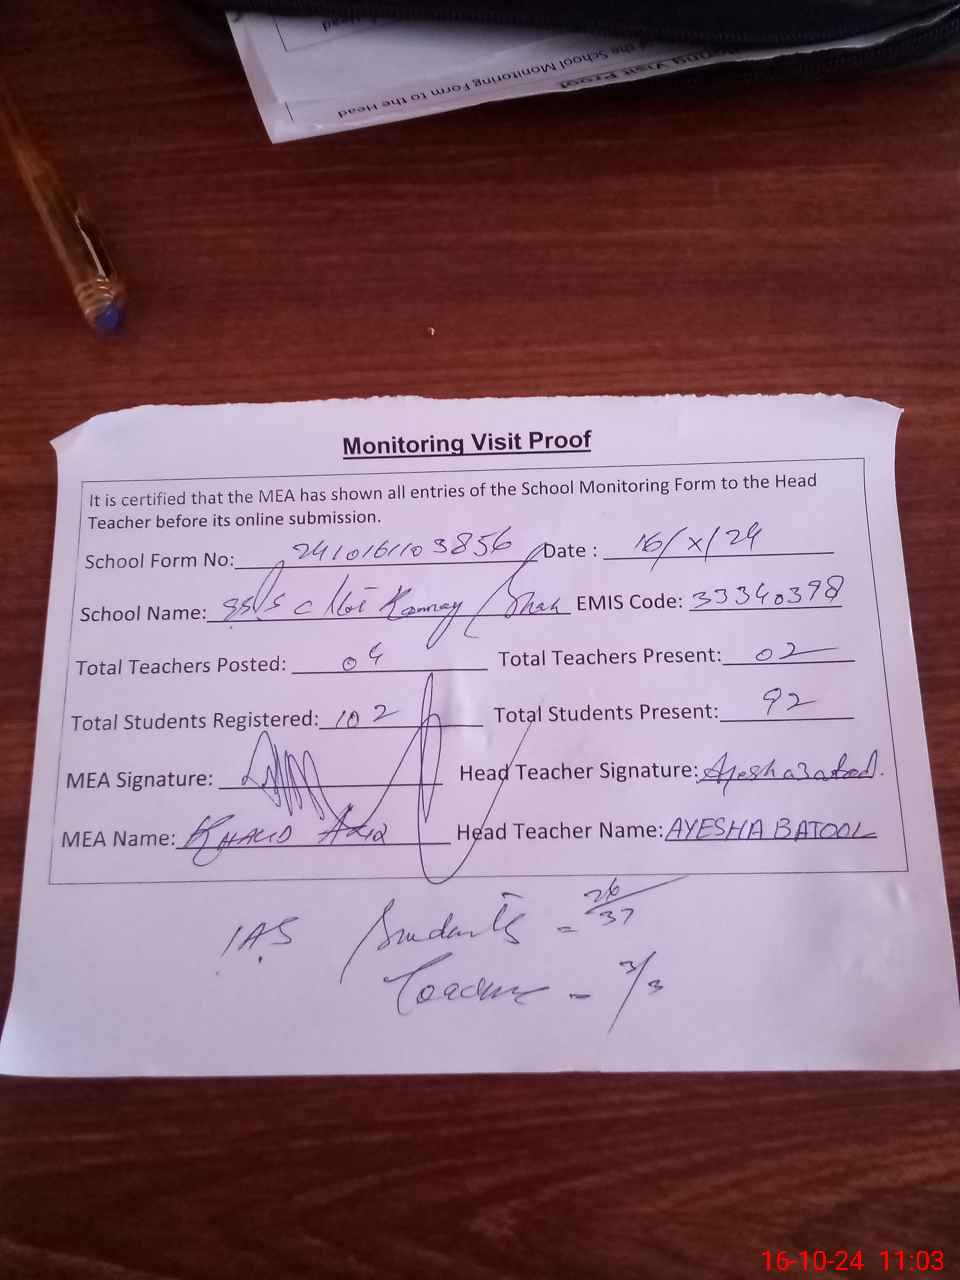 Head
of the School Monitoring Form to the Head
Visit Proof
Monitoring Visit Proof
It is certified that the MEA has shown all entries of the School Monitoring Form to the Head
Teacher before its online submission.
School Form No: 2410161103856 Date : 16/X/24
School Name: Shah EMIS Code: 33340398
Total Teachers Posted: 04 Total Teachers Present: 02
Total Students Registered: 102 Total Students Present: 92
MEA Signature: Head Teacher Signature: Ayesha Batool.
MEA Name: KHALID AZIZ Head Teacher Name: AYESHA BATOOL
IAS Students = 26/37
Teacher = 3/3
16-10-24 11:03